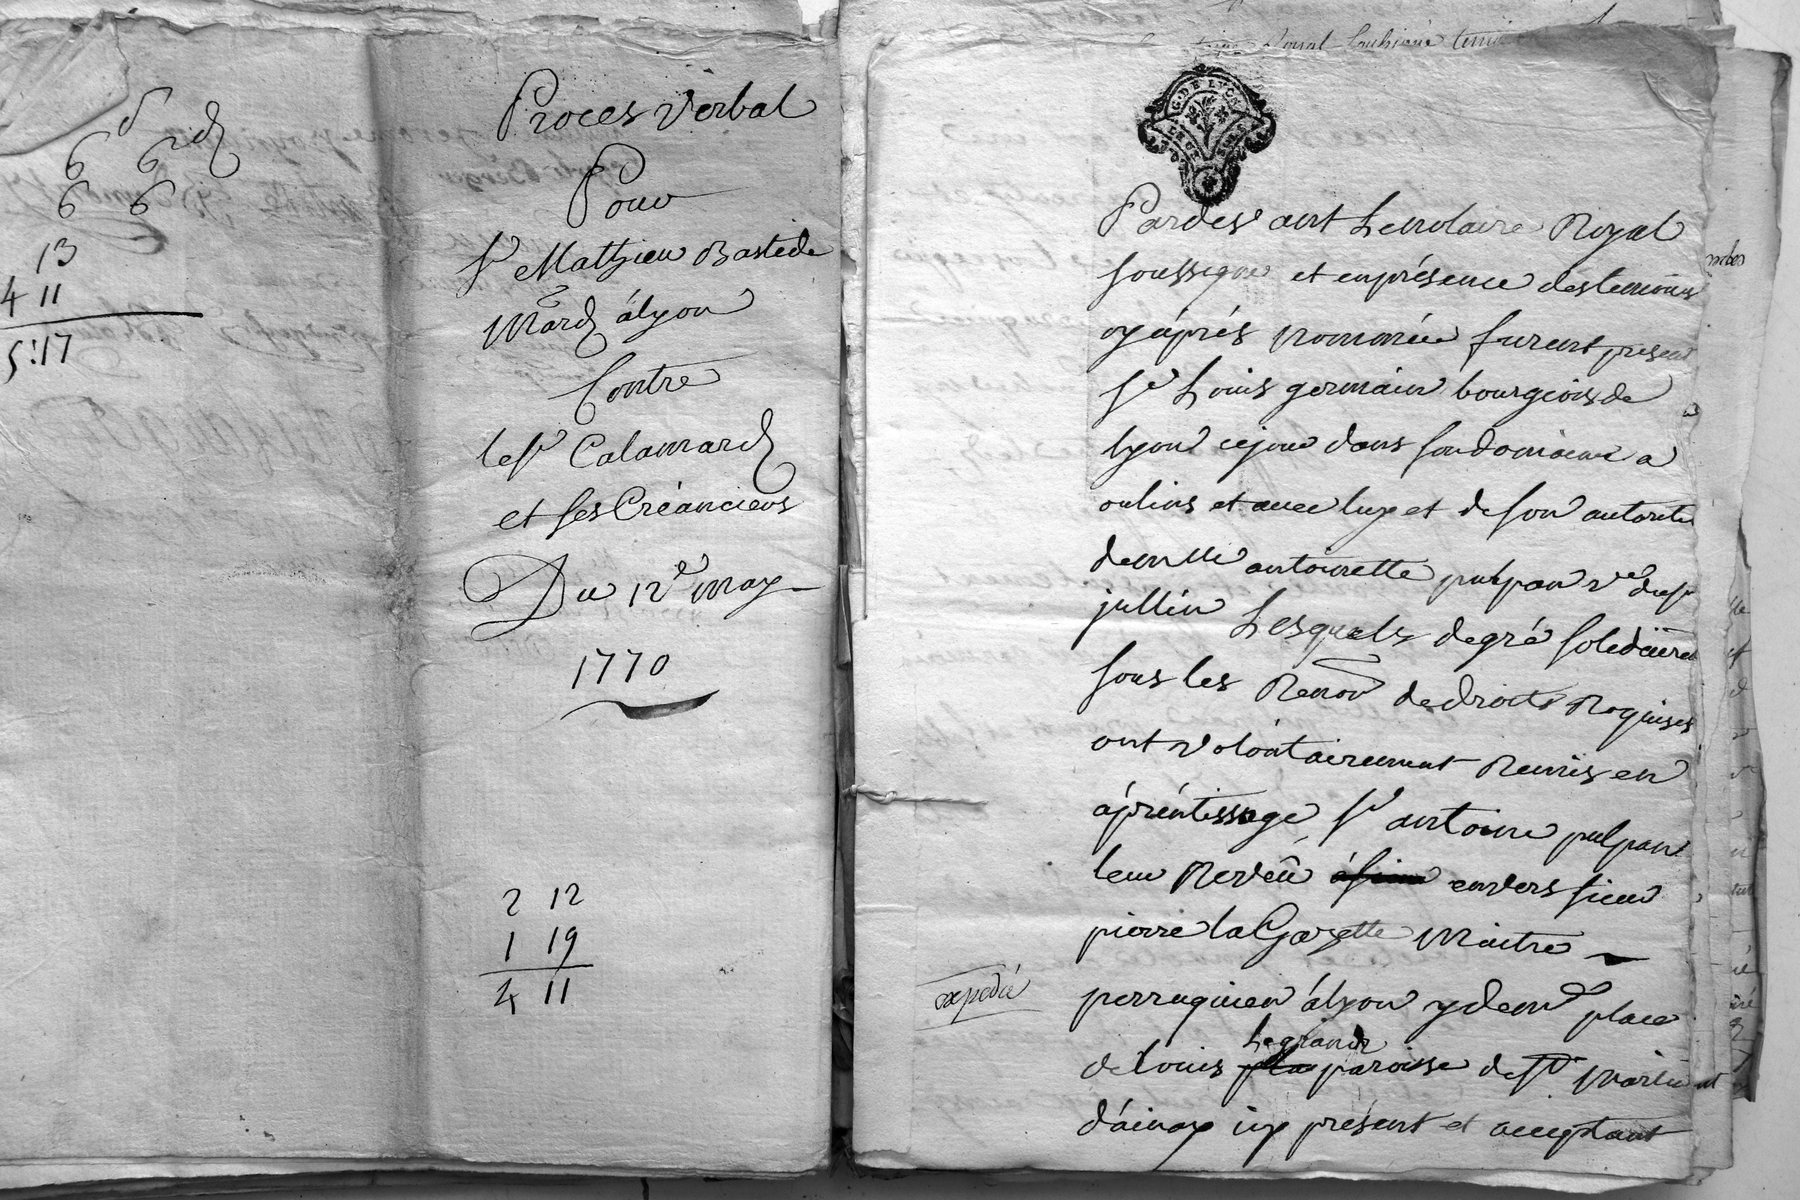 6 6
6 6
13
4 11
5:17
Proces Verbal
Pour
Sr Mathieu Bastide
March à lyon
Contre
le Sr Calamard
et ses Créanciers
Du 12e may
1770
2 12
1 19
4 11
G. DE LYON
Pardevant Le notaire Royal
soussigné et en présence des temoins
cy áprés nommée furent present
Sr Louis germain bourgeois de
lyon dans son domaine a
oulins et avec luy et de son autorité
demlle antoinette pulpan ve du Sr
jullin Lesquels de gré solidairemt
sous les Renon de droits Requises
ont volontairement Remis en
áprentissage Sr antoine pulpan
leur Neveu envers sieur
pierre la Gazette Maitre
expedié
perruquier à lyon y demt place
de Louis Legrand paroisse de St Martin
d'ainay icy présent et acceptant